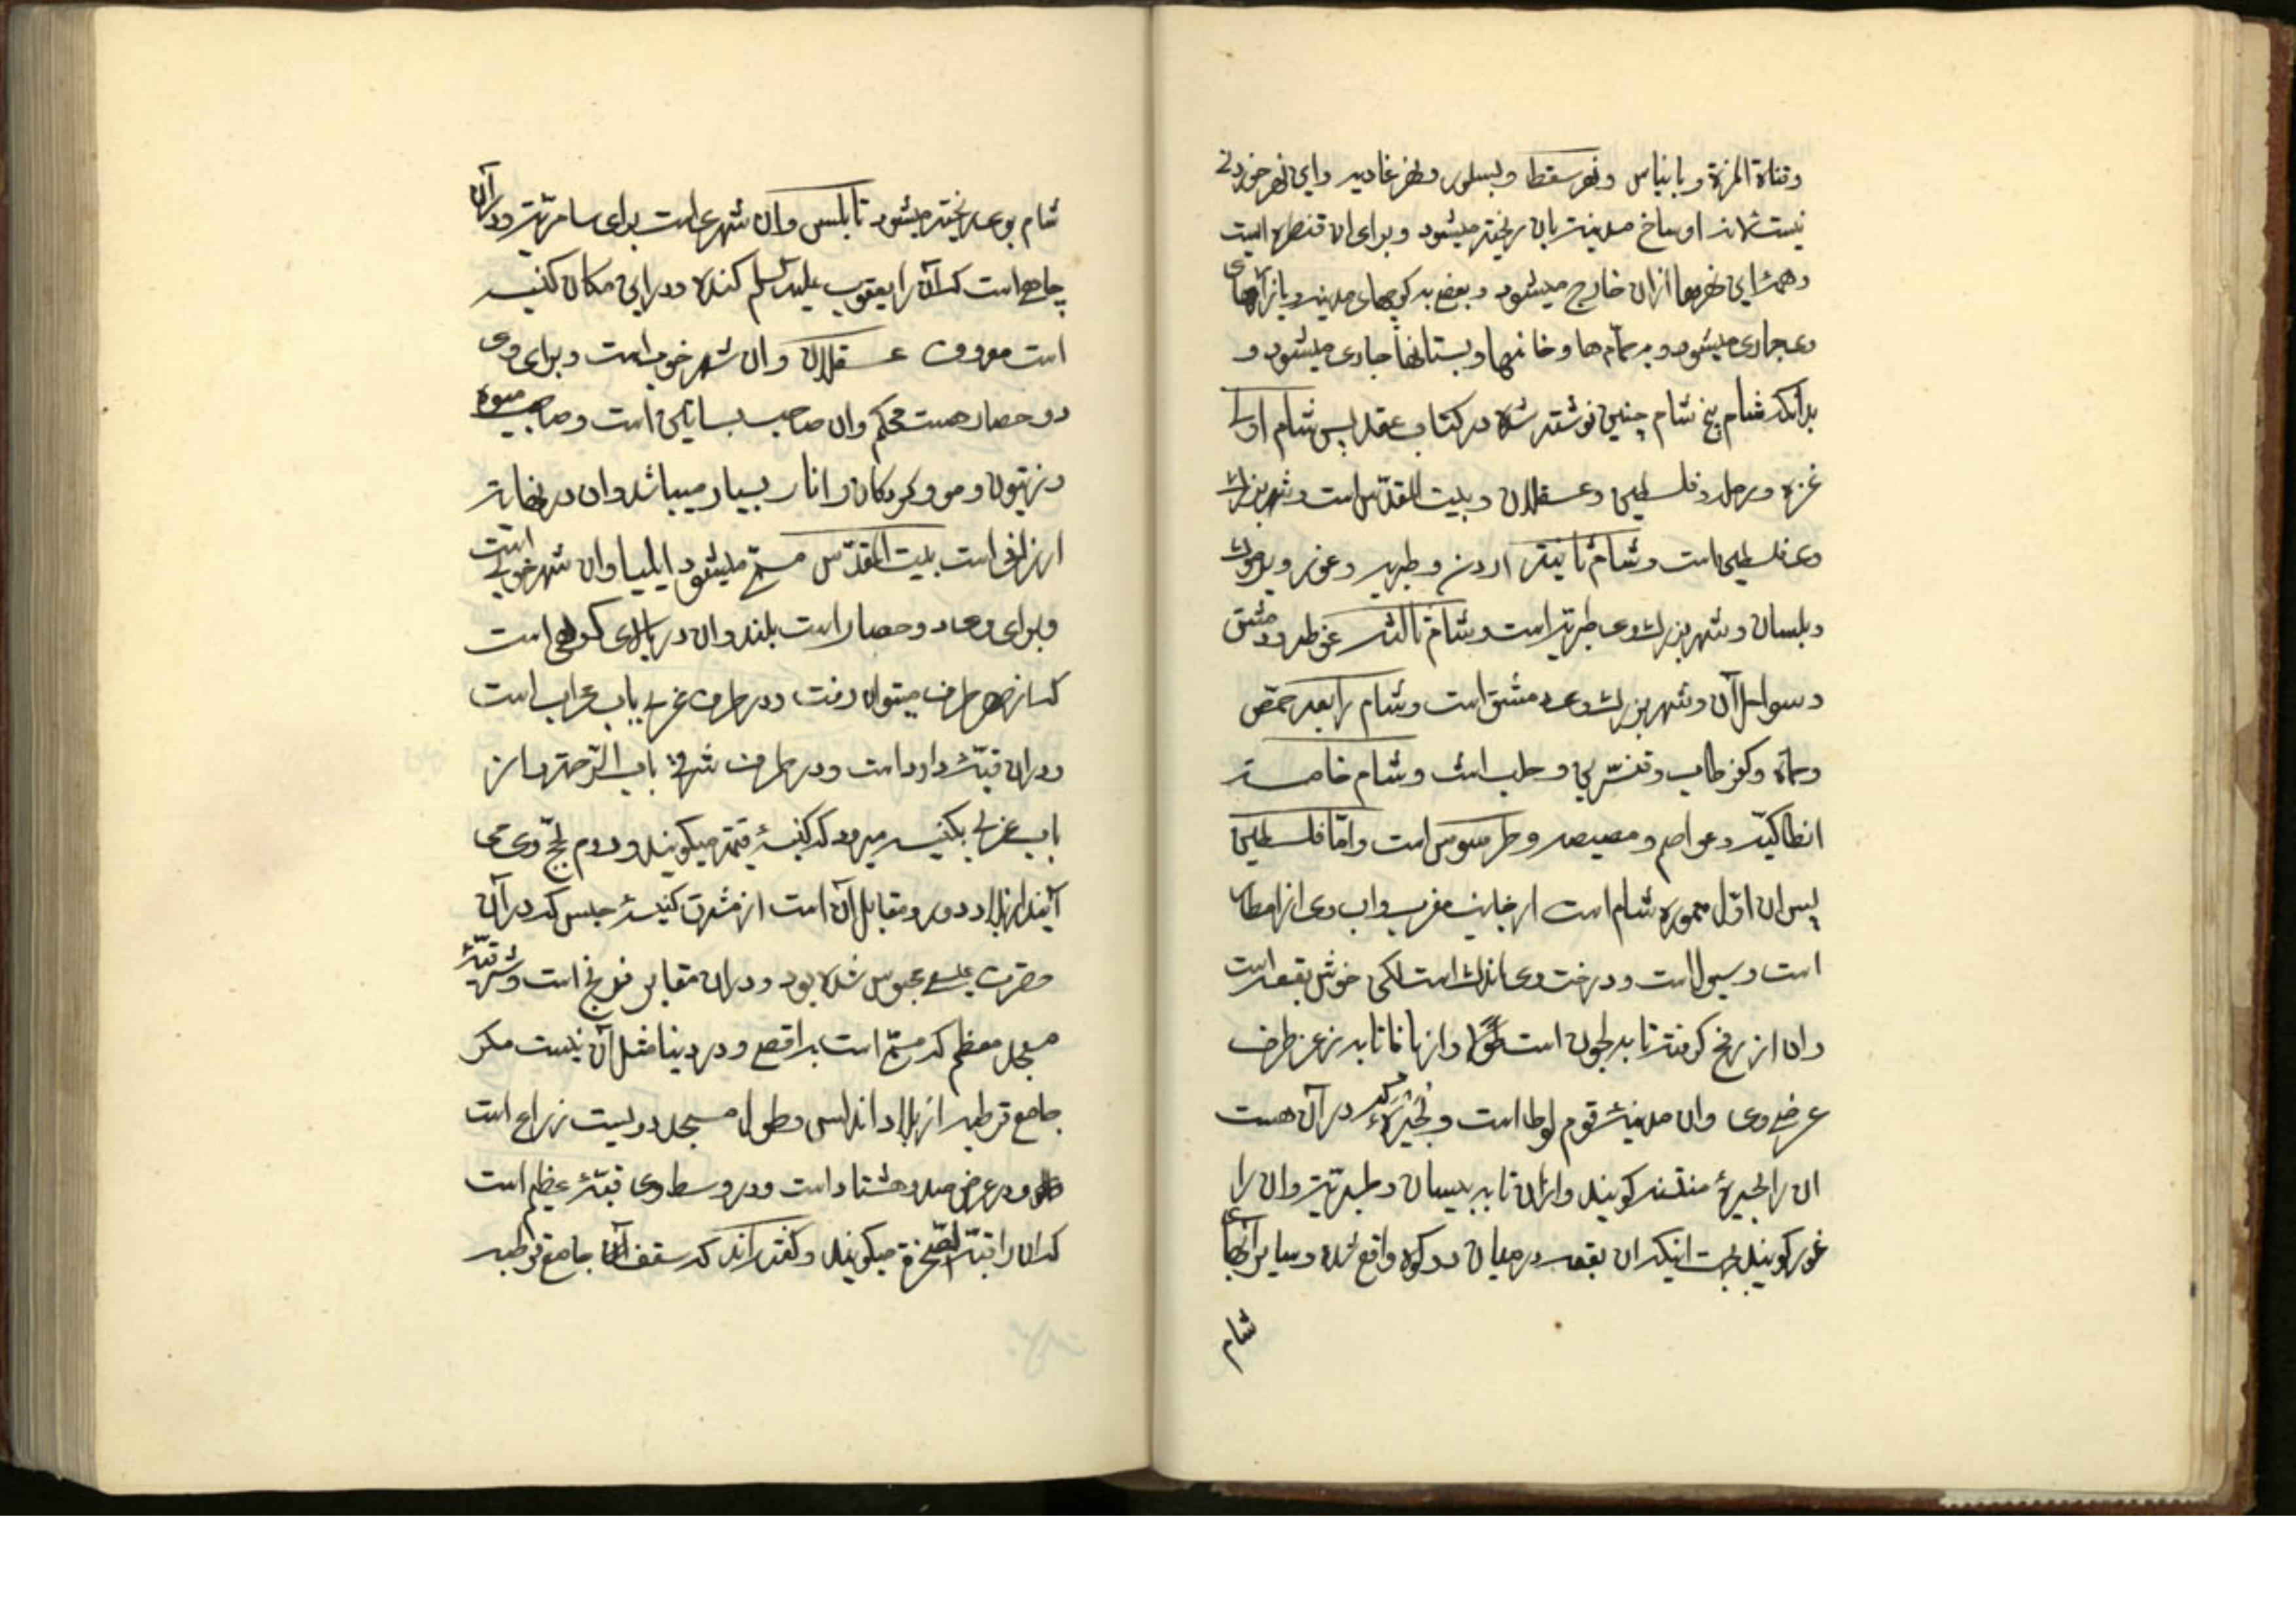 وقناة المزة و بانیاس و نهر سقط و یسلور و نهر عادیه و این نهر خوردنے
نیست اوساخ مدینه بان ریخته میشود و برای ان قنطره ایست
و همهٔ این نهرها ازان خارج میشود و بعض به کوچهای مدینه و بازارهای
وی جاری میشود و به حمّام ها و خانها و بستانها جاری میشود و
بدانکه شام پنج شام چنین نوشته شده در کتاب عقد پس شام اولے
غزه و رمله و فلسطین و عسقلان و بیت المقدّس است و شهر بزرك
وی فلسطین است و شام ثانیه اردن و طبریه و غور و یرموك
و بلسان و شهر بزرك وی طبریّه است و شام ثالثه غوطه و دمشق
و سواحل آن و شهر بزرك وی دمشق است و شام رابعه حمّص
و حماة و کفرطاب و قنسّرین و حلب است و شام خامسه
انطاکیّه و عواصم و مصیصه و طرسوس است و امّا فلسطین
پس ان اوّل معموره شام است از جانب مغرب و اب وی از امطار
است و سیول است و درخت وی اندك است لکن خوش بقعه است
و ان از رفح کرفته تا به لجون است طولًا و از یافا تا به زعر طرف
عرض وی وان مدینهٔ قوم لوط است و بحیرهٔ که در آن هست
ان را بحیرهٔ منتنه کویند و ازان تا به بیسان و طبریّه وان را
غور کویند بجهت اینکه ان بقعه در میان دو کوه واقع شده و سایر آبهای
شام
شام بوی ریخته میشود نابلس وان شهری است برای سامریّه و در آن
چاهی است که آن را یعقوب علیه السلم کنده و در این مکان کنیسه
است معروف عسقلان وان شهر خوب است و برای وی
دو حصار هست محکم وان صاحب بساتین است و صاحب میوه
و زیتون و مو و کردکان و انار بسیار میباشد وان در نهایت
ارزانی است بیت المقدّس مسمّے میشود ایلیا وان شهر خوبے است
و برای وی دو حصار است بلند وان در بالای کوهی است
که از هر طرف میتوان رفت و در طرف غربے باب محراب است
و در ان قبّهٔ داود است و در طرف شرقے باب الرّحمة و از
باب غربے بکنیسه میرود که کنیسهٔ قمّة میکویند و روم بحجّ وی می
آیند از بلاد دور و مقابل آن است از مشرق کنیسهٔ حبس که در آن
حضرت عیسے محبوس شده بود و در ان مقابر فرنج است و شرقیّهٔ
مسجد معظم که مسمّے است به اقصے و در دنیا مثل آن نیست مکر
جامع قرطبه از بلاد اندلس و طول مسجد دویست زراع است
و در عرض صد و هشتاد است و در وسط وی قبّهٔ عظیم است
که ان را قبّة الصّخرة میکویند و کفته اند که سقف آن جامع قرطبه